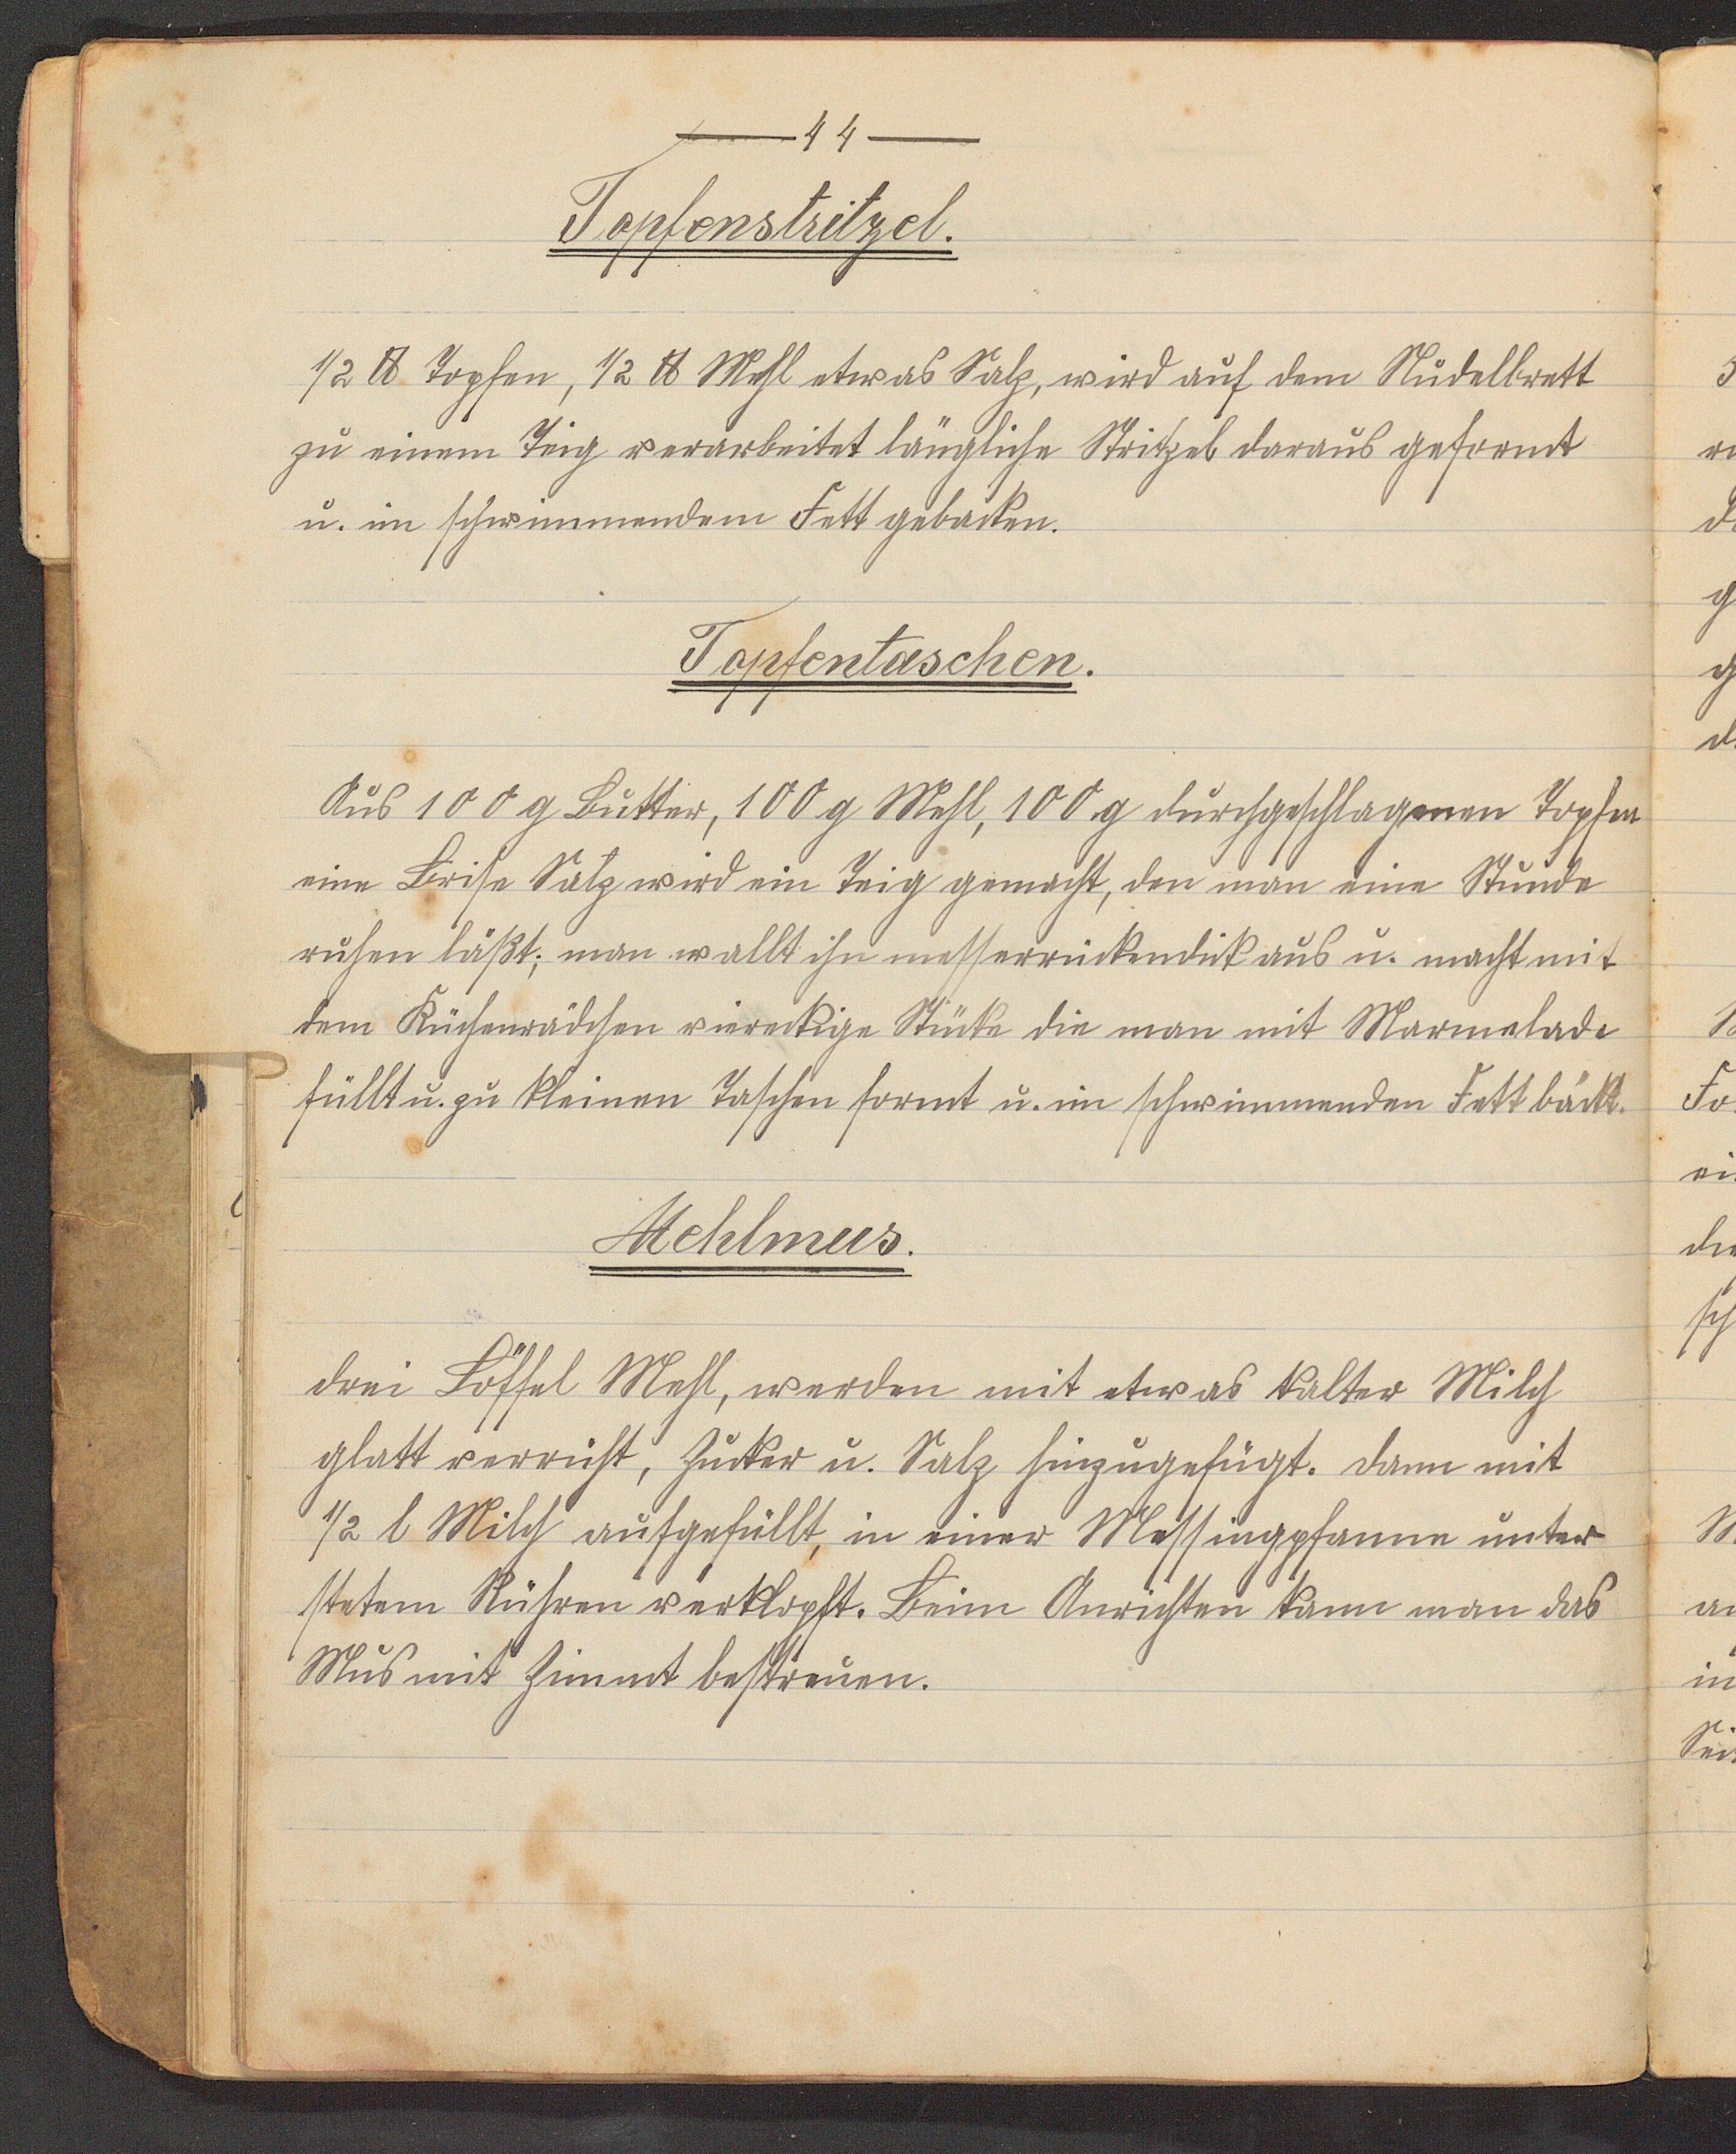 44
Topfenstritzel.
1/2 ℔ Topfen, 1/2 ℔ Mehl etwas Salz, wird auf dem Nudelbrett
zu einem Teig verarbeitet längliche Stritzel daraus geformt
u. im schwimmendem Fett gebacken.
Topfentaschen.
Aus 100 g Butter, 100 g Mehl, 100 g durchgeschlagenen Topfen
eine Brise Salz wird ein Teig gemacht, den man eine Stunde
ruhen läßt; man wallt ihn messerrückendick aus u. macht mit
dem Küchenrädchen viereckige Stücke die man mit Marmelade
füllt u. zu kleinen Taschen formt u. im schwimmenden Fett bäckt.
Mehlmus.
drei Löffel Mehl, werden mit etwas kalter Milch
glatt verrührt, Zucker u. Salz hinzugefügt. dann mit
1/2 l Milch aufgefüllt, in einer Messingpfanne unter
stetem Rühren verklopft. Beim Anrichten kann man das
Mus mit Zimmt bestreuen.